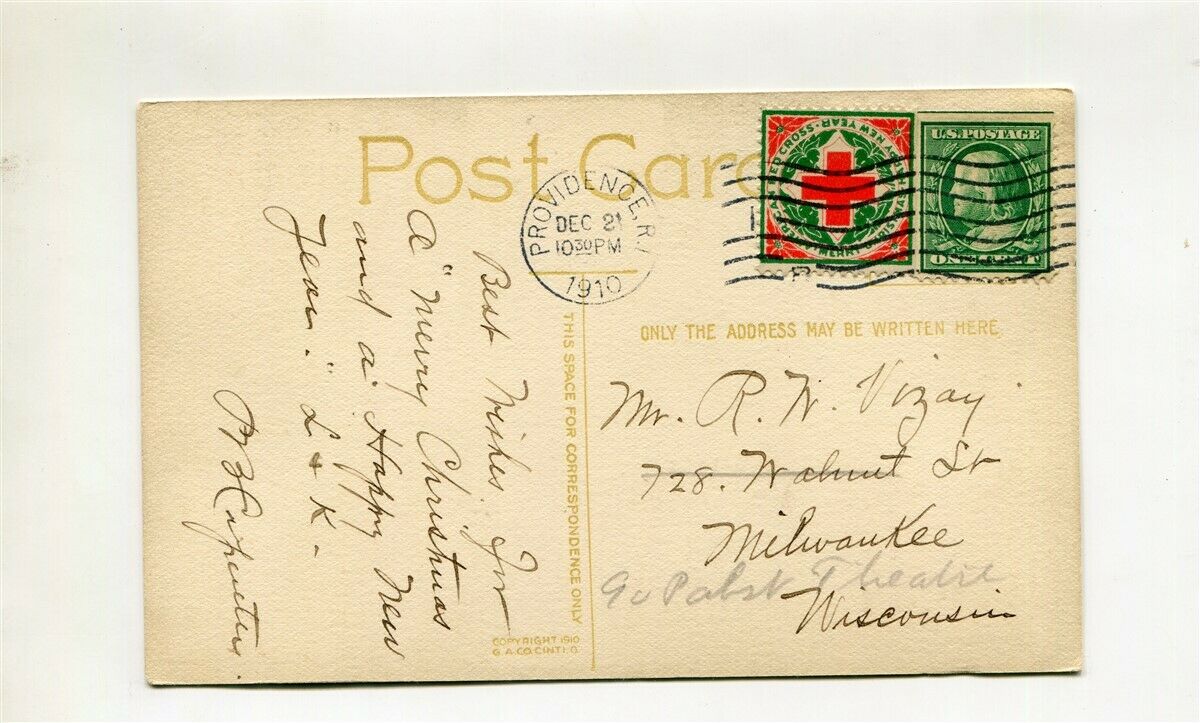 Post Card
PROVIDENCE, R.I.
DEC 21
10 30 PM
1910
AMERICAN RED CROSS · HAPPY NEW YEAR
MERRY CHRISTMAS
U.S. POSTAGE
ONE CENT
THIS SPACE FOR CORRESPONDENCE ONLY
ONLY THE ADDRESS MAY BE WRITTEN HERE.
Best Wishes for
A "Merry Christmas
and a Happy New
Year." L + K -
Mr. R. W. Vizay
728. Walnut St
Milwaukee
Pabst Theatre
Wisconsin
COPYRIGHT 1910
G. A. CO. CINTI. O.